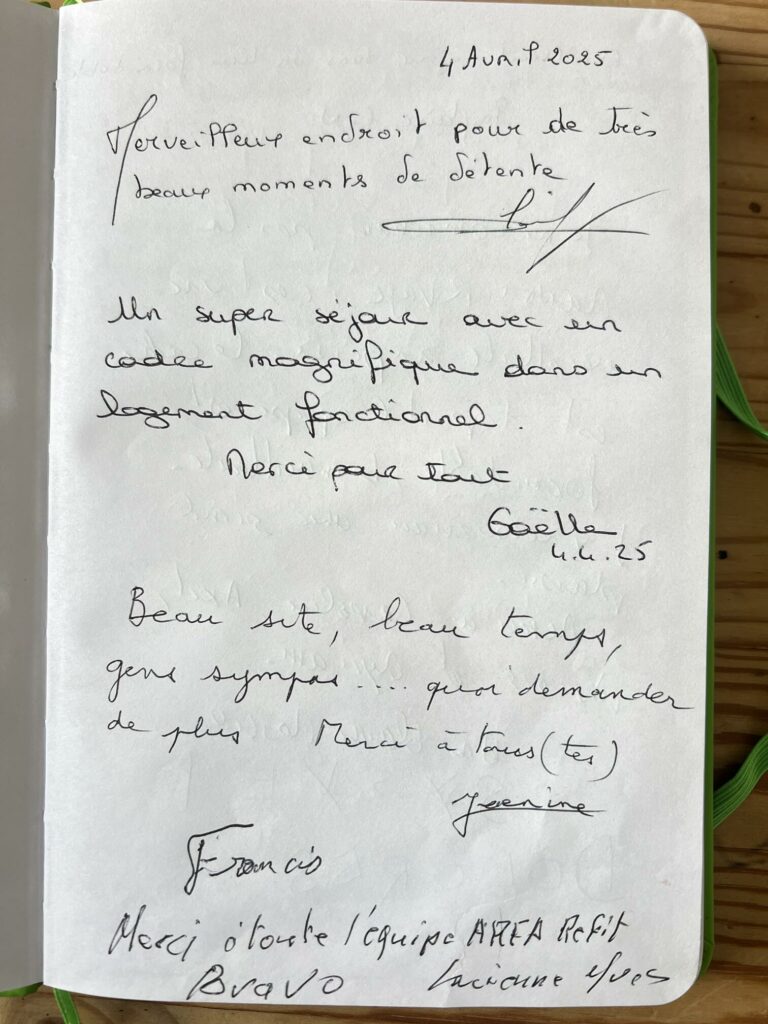 4 Avril 2025
Merveilleux endroit pour de très
beaux moments de détente
Un super séjour avec un
cadre magnifique dans un
logement fonctionnel.
Merci pour tout
Gaëlle
4.4.25
Beau site, beau temps,
gens sympas .... quoi demander
de plus Merci à tous (tes)
Jeanine
Francis
Merci à toute l'équipe AREA Refit
Bravo Lucienne Yves